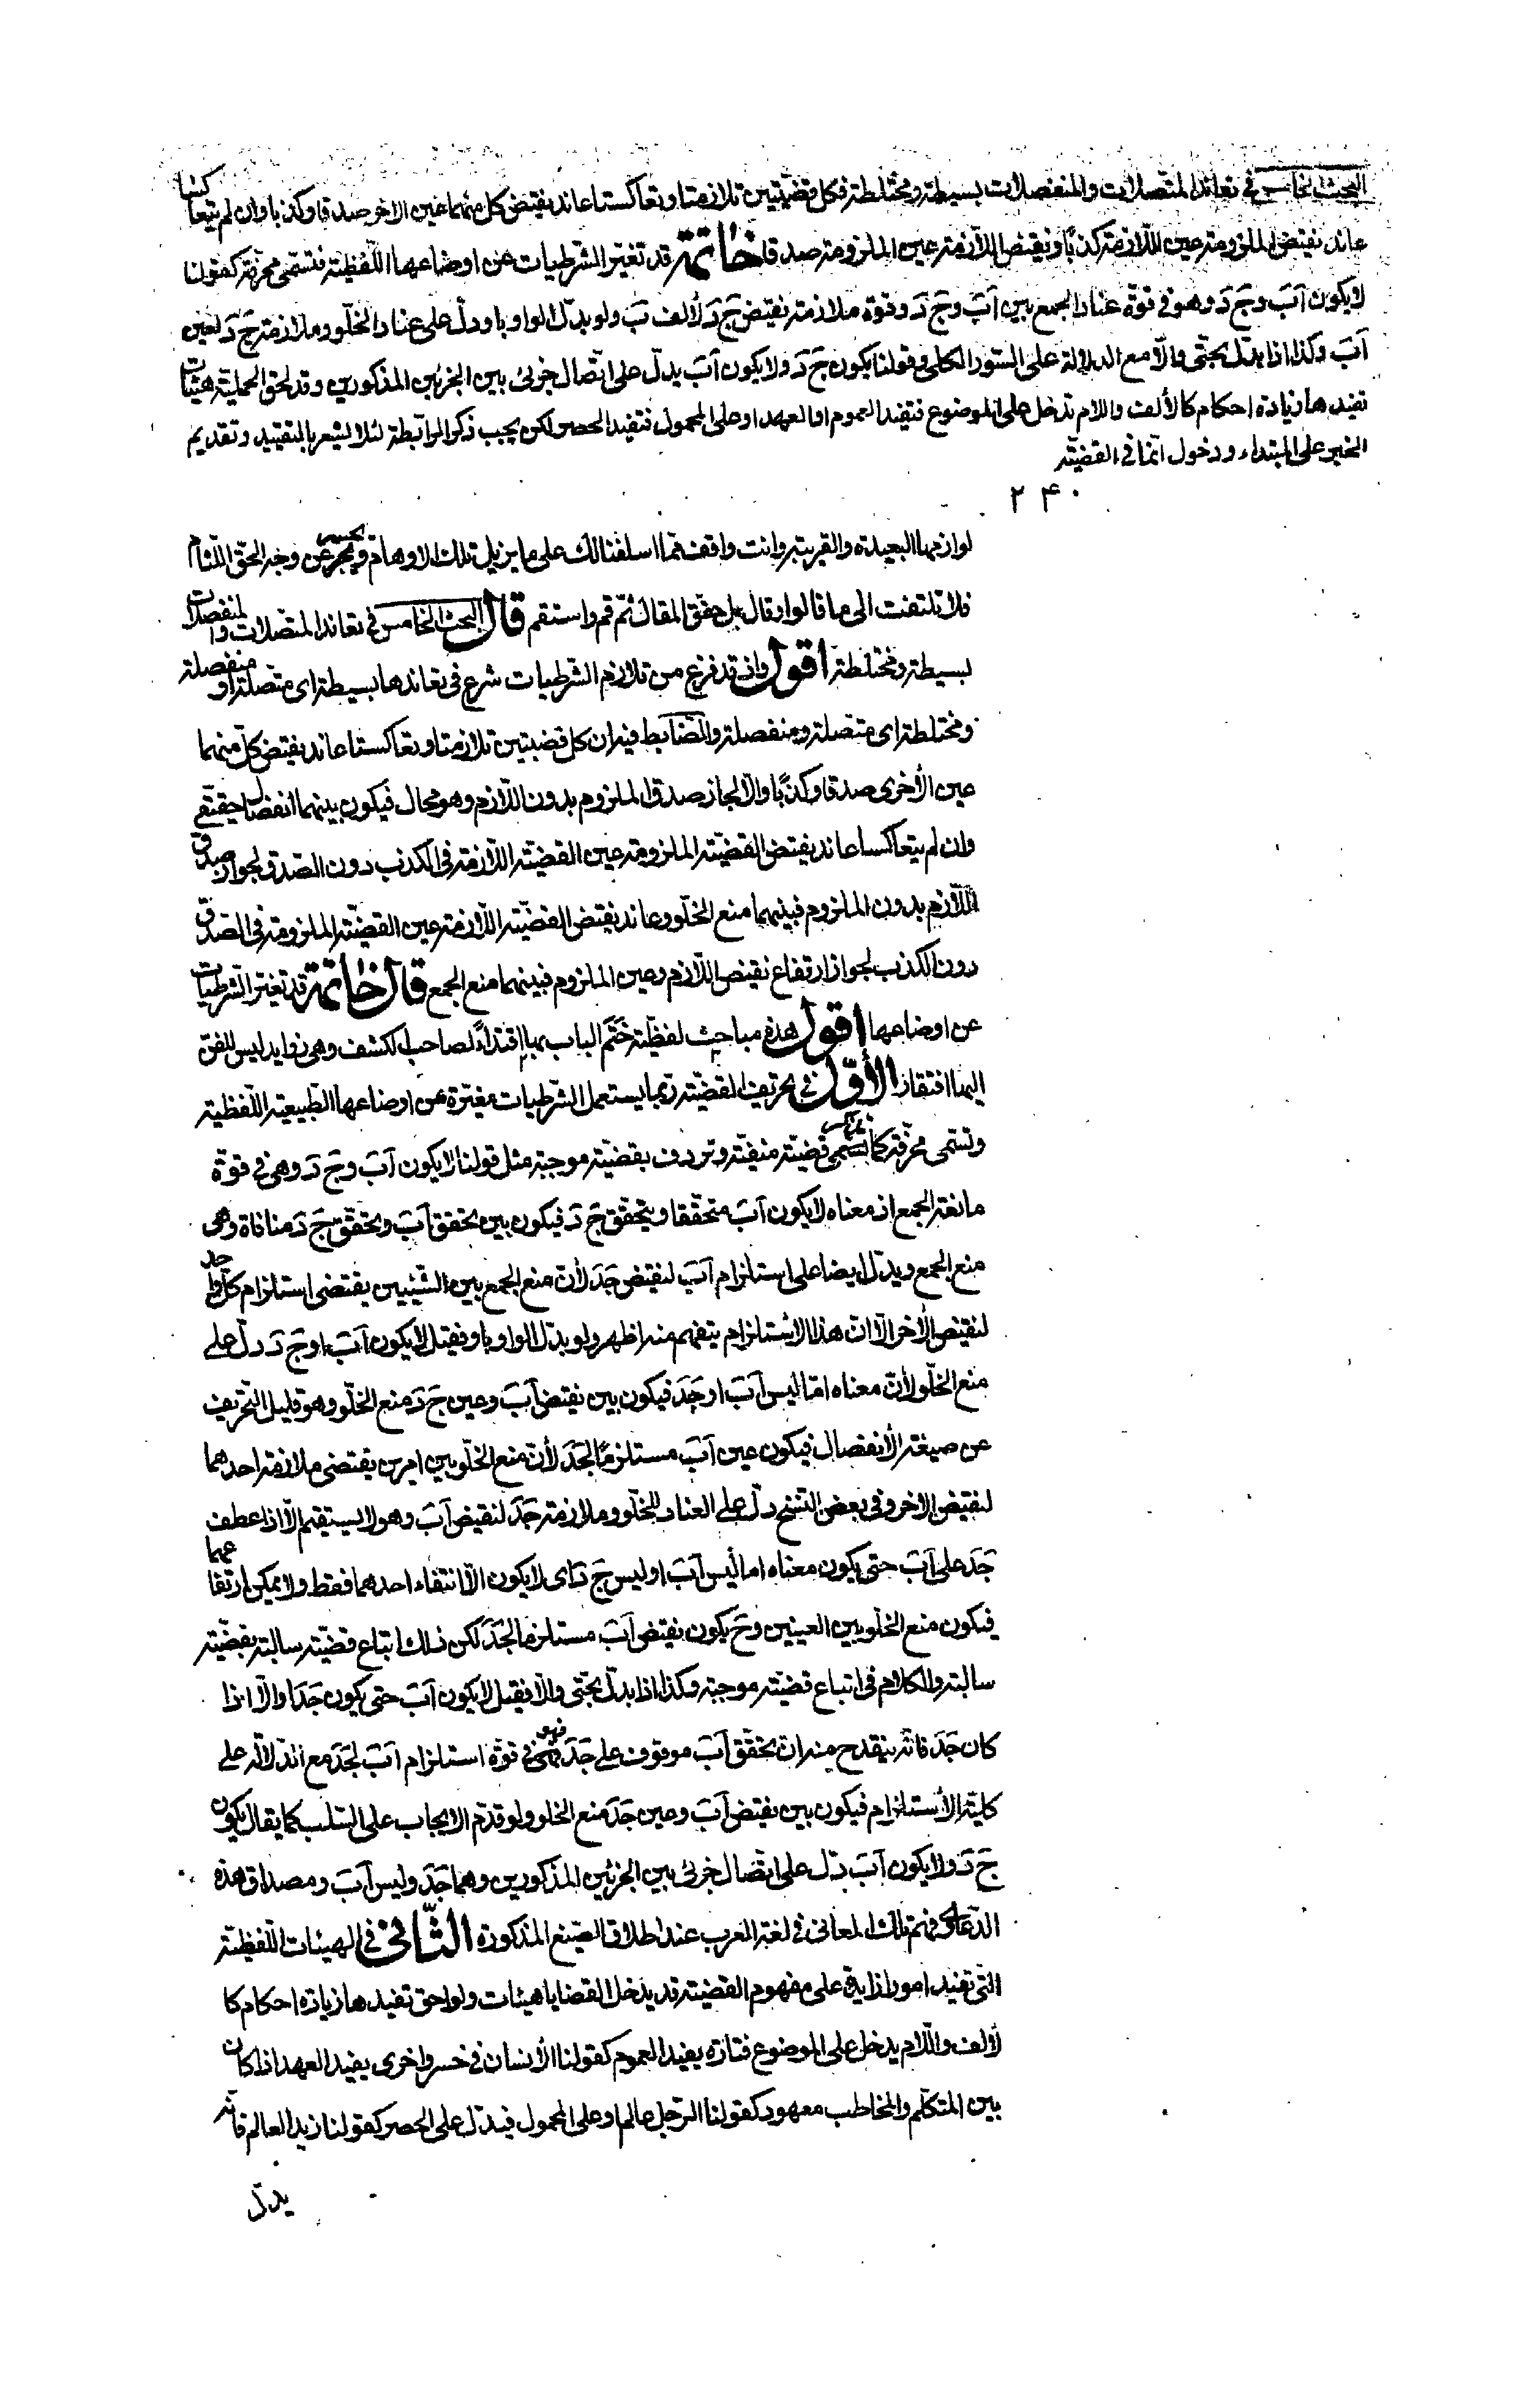 البحث الخامس في تعاند المتصلات والمنفصلات بسيطة ومختلطة فكل قضيتين تلازمتا وتعاكستا عاند نقيض كل منهما عين الاخر صدقا وكذبا وان لم يتعاكسا
عاند نقيض الملزومة عين اللازمة كذبًا ونقيض اللازمة عين الملزومة صدقا خاتمة قد تغير الشرطيات عن اوضاعها اللفظية فتسمى محرفة كقولنا
لا يكون اَبَ وجَ دَ وهو في قوة عناد الجمع بين اَبَ وجَ دَ وقوة ملازمة نقيض جَ دَ لألف بَ ولو بدّل الواو باو دلّ على عناد الخلّو وملازمة جَ دَ لعين
اَبَ وكذا اذا بدّل بحتّى والّا مع الدلالة على السّور الكلى وقولنا يكون جَ دَ ولا يكون اَبَ يدلّ على اتّصال جزئى بين الجزئين المذكورين وقد لحق الحملية هيئات
تفيدها زيادة احكام كالألف واللام تدخل على الموضوع فتفيد العموم او العهد او على المحمول فتفيد الحصر لكن يجب ذكر الرابطة لئلا يشعر بالتقييد وتقديم
الخبر على المبتداء ودخول انّما في القضيّة
۲۴۰
لوازمها البعيدة والقريبة وانت واقف ممّا اسلفنا لك على ما يزيل تلك الاوهام عن وجه الحقّ اللّثام
فلا تلتفت الى ما قالوا وقال بل حقّق المقال ثمّ قم واستقم قال البحث الخامس في تعاند المتصلات والمنفصلات
بسيطة ومختلطة اقول واذ قد فرغ من تلازم الشّرطيات شرع في تعاندها بسيطة اى متصلة او منفصلة
ومختلطة اى متصلة ومنفصلة والضّابط فيه ان كل قضيتين تلازمتا وتعاكستا عاند نقيض كلّ منهما
عين الأخرى صدقا وكذبًا والّا لجاز صدق الملزوم بدون اللازم وهو محال فيكون بينهما انفصال حقيقى
وان لم يتعاكسا عاند نقيض القضيّة الملزومة عين القضيّة اللّازمة في الكذب دون الصّدق لجواز صدق
اللّازم بدون الملزوم فبينهما منع الخلّو وعاند نقيض القضيّة اللّازمة عين القضيّة الملزومة في الصّدق
دون الكذب لجواز ارتفاع نقيض اللّازم وعين الملزوم فبينهما منع الجمع قال خاتمة قد تغير الشّرطيات
عن اوضاعها اقول هذه مباحث لفظيّة خَتَمَ الباب بها اقتداءً لصاحب الكشف وهى زوايد ليس للفنّ
اليها افتقار الأوّل في تحريف القضيّة ربّما يستعمل الشّرطيات مغيّرة عن اوضاعها الطّبيعية اللّفظية
وتسمى محرّفة كما قضيّة منفيّة وتردف بقضيّة موجبة مثل قولنا لا يكون اَبَ وجَ دَ وهى في قوّة
مانعة الجمع اذ معناه لا يكون اَبَ متحقّقا ويتحقّق جَ دَ فيكون بين تحقق اَبَ وتحقّق جَ دَ منافاة وهى
منع الجمع ويدلّ ايضا على استلزام اَبَ لنقيض جَدَ لأنّ منع الجمع بين الشّيئين يقتضى استلزام كلّ واحد
لنقيض الأخر الّا انّ هذا الاستلزام يتفهم منه اظهر ولو بدّل الواو باو فقيل لا يكون اَبَ او جَ دَ دلّ على
منع الخلّو لأنّ معناه امّا ليس اَبَ او جَدَ فيكون بين نقيض اَبَ وعين جَ دَ منع الخلّو وهو قليل التّحريف
عن صيغة الأنفصال فيكون عين اَبَ مستلزمًا لجَدَ لأنّ منع الخلّو بين امرين يقتضى ملازمة احدهما
لنقيض الاخر وفى بعض النّسخ دلّ على العناد للخلّو وملازمة جَدَ لنقيض اَبَ وهو لا يستقيم الّا اذا عطف
جَدَ على اَبَ حتى يكون معناه اما ليس اَبَ او ليس جَ دَ اى لا يكون الّا انتفاء احدهما فقط ولا يمكن ارتفاعهما
فيكون منع الخلّو بين العينين وحَ يكون نقيض اَبَ مستلزما لجَدَ لكن ذلك اتباع قضيّة سالبة بقضيّة
سالبة والكلام في اتباع قضيّة موجبة وكذا اذا بدّل بحتّى والّا فقيل لا يكون اَبَ حتى يكون جَدَ او الّا اذا
كان جَدَ فانّه ينقدح منه ان تحقّق اَبَ موقوف على جَدَ فهو في قوّة استلزام اَبَ لجَدَ مع الدّلالة على
كلية الأستلزام فيكون بين نقيض اَبَ وعين جَدَ منع الخلو ولو قدّم الايجاب على السّلب كما يقال يكون
جَ دَ ولا يكون اَبَ دلّ على اتصال جزئى بين الجزئين المذكورين وهما جَدَ وليس اَبَ ومصداق هذه
الدّعاوى فهم تلك المعانى في لغة العرب عند اطلاق الصّيغ المذكورة الثّانى في الهيئات اللّفظية
الّتى تفيد امورا زايدة على مفهوم القضيّة قد يدخل القضايا هيئات ولواحق تفيدها زيادة احكام كا
لألف واللّام يدخل على الموضوع فتارة يفيد العموم كقولنا الأنسان في خسر واخرى يفيد العهد اذا كان
بين المتكلّم والمخاطب معهود كقولنا الرّجل عالم او على المحمول فيدلّ على الحصر كقولنا زيد العالم فانّه
يدلّ